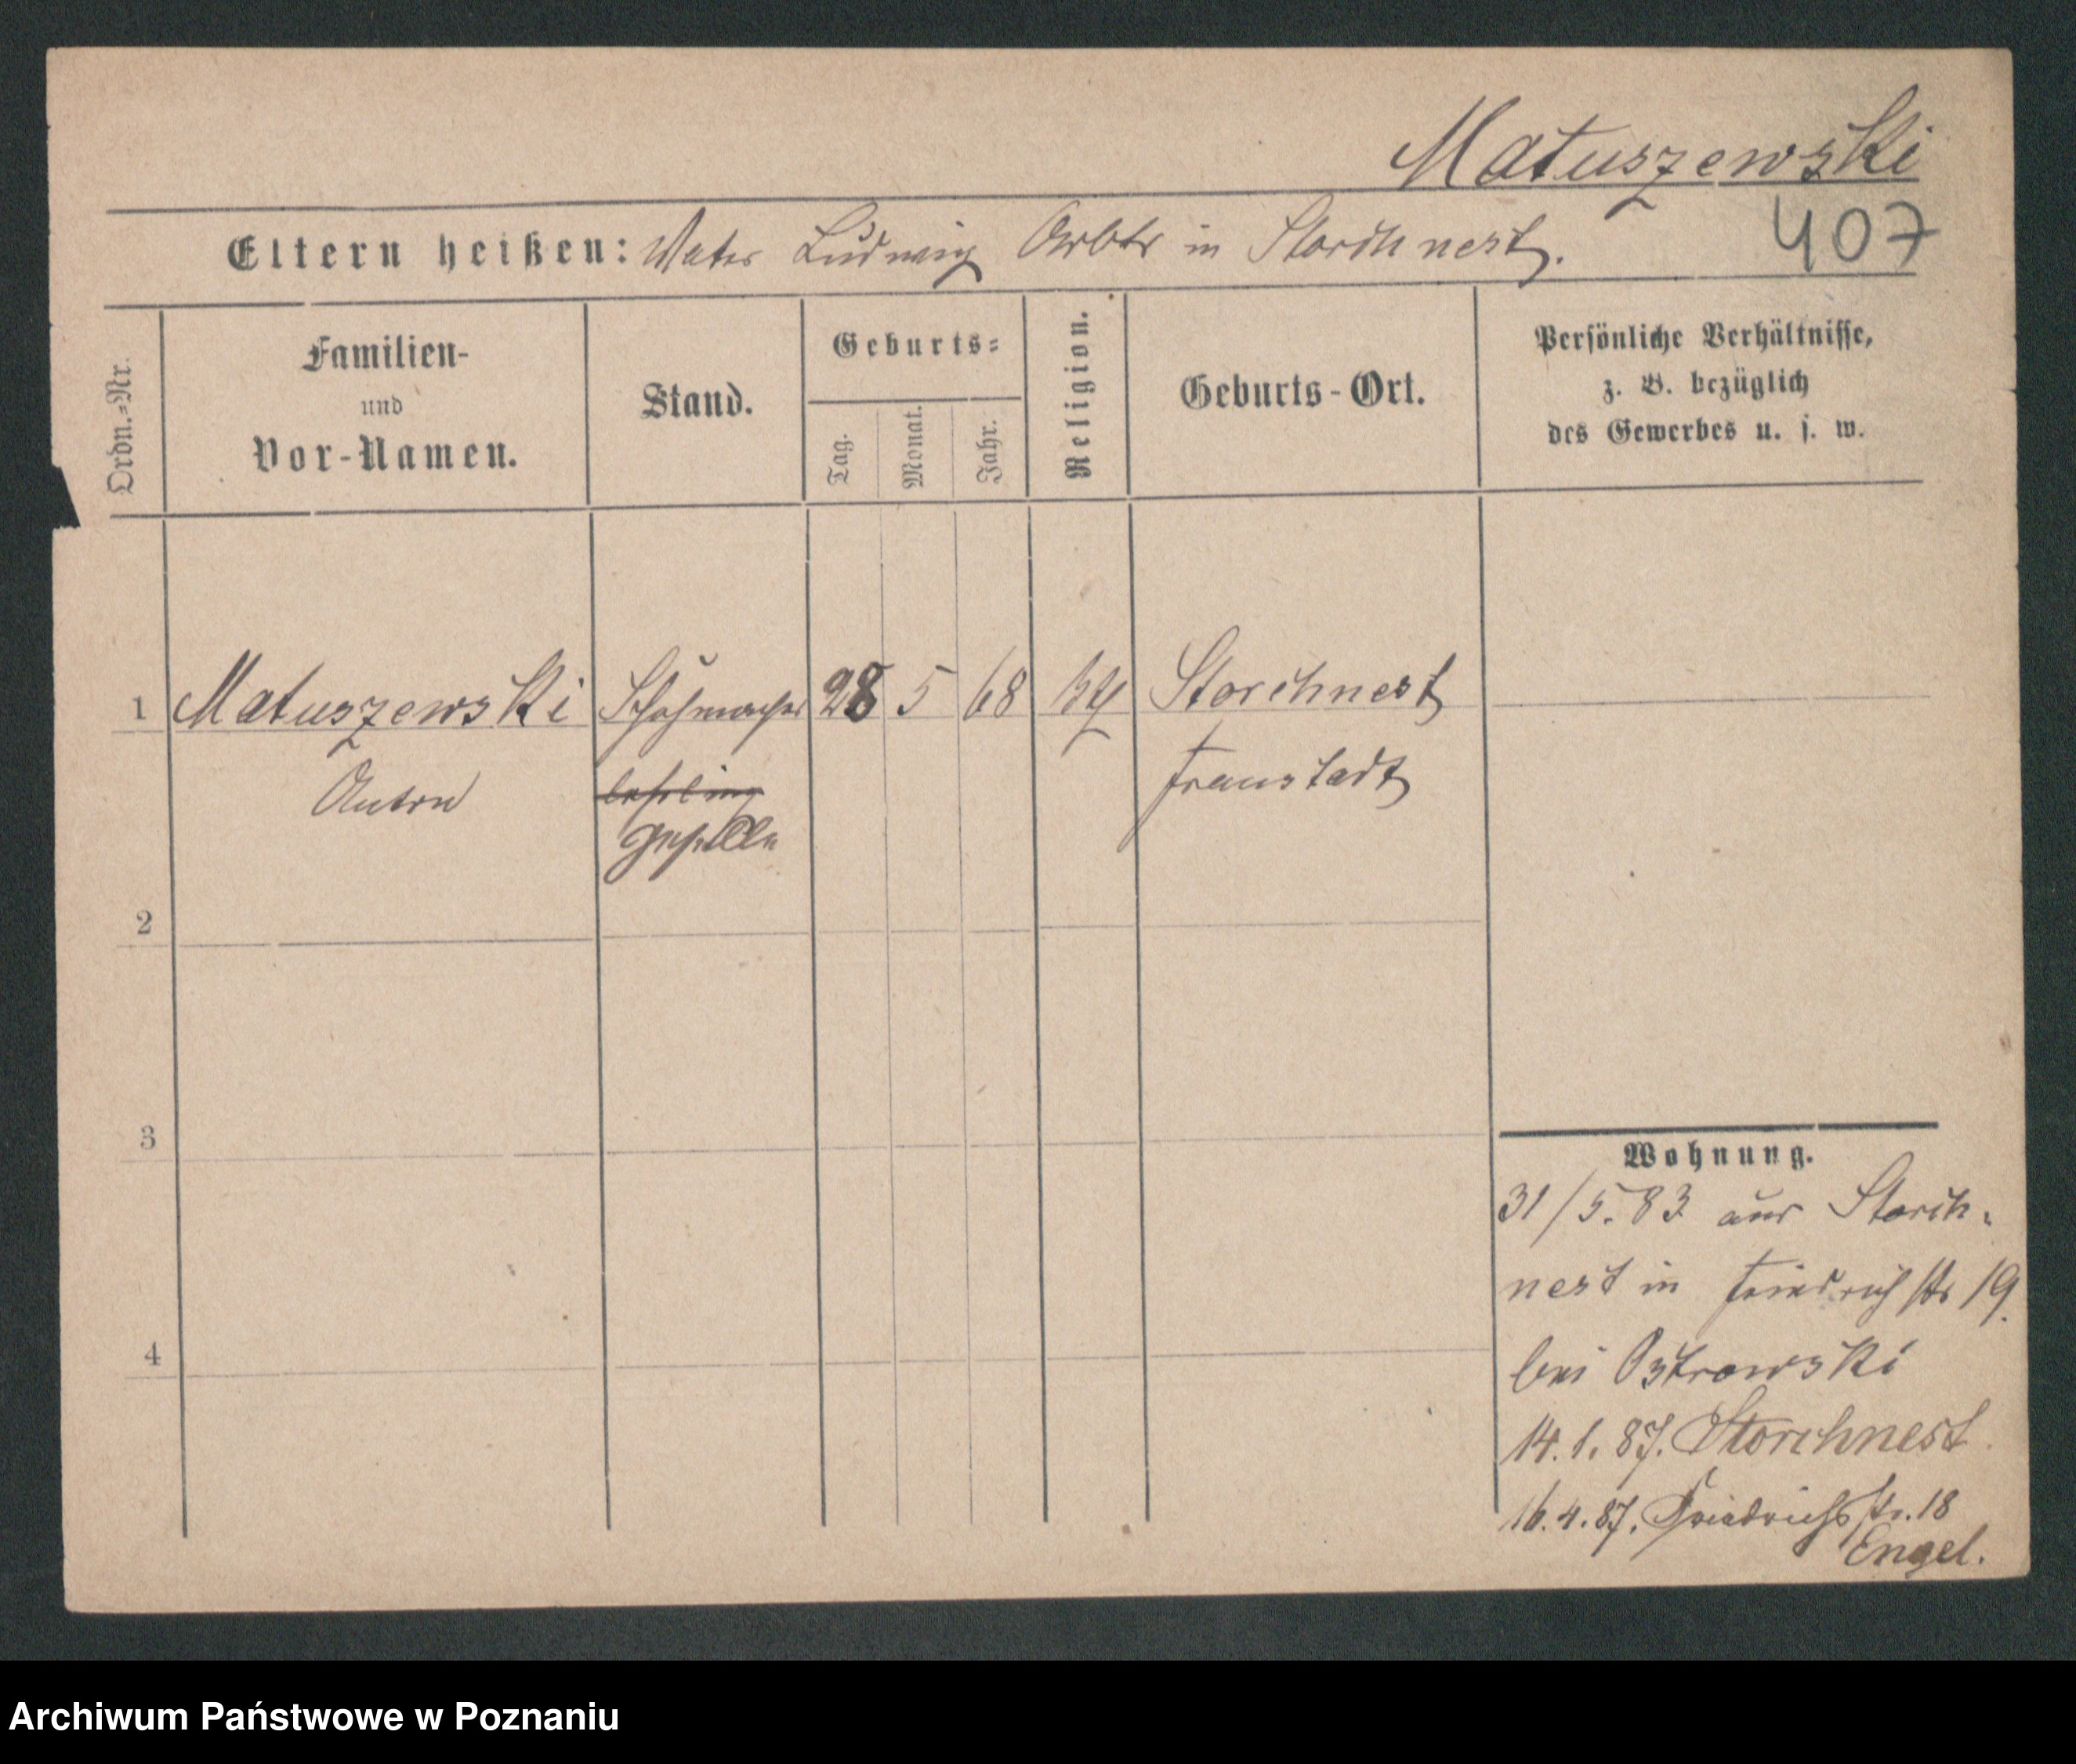 Matuszewski
407
Eltern heißen: Vater Ludwig Arbtr in Storchnest.
Ordn.=Nr.
Familien-
und
Vor-Namen.
Stand.
Geburts=
Tag.
Monat.
Jahr.
Religion.
Geburts-Ort.
Persönliche Verhältnisse,
z. B. bezüglich
des Gewerbes u. s. w.
1 Matuszewski Schuhmacher 28 5 68 kth Storchnest
Anton lehrling Fraustadt
geselle
2
3
4
Wohnung.
31/5.83 aus Storch-
nest in Friedrichstr 19.
bei Ostrowski
14.1.87. Storchnest.
16.4.87. Friedrichstr. 18
Engel.
Archiwum Państwowe w Poznaniu